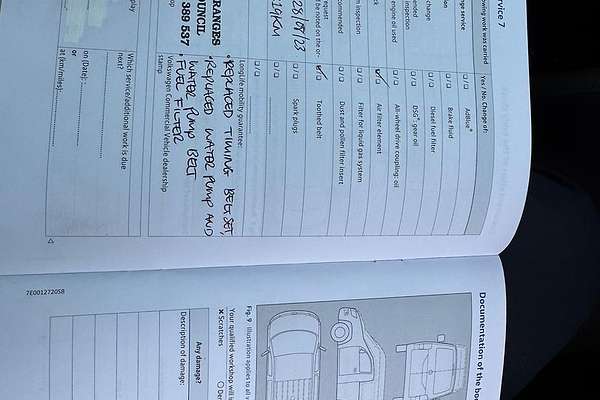 rvice 7
owing work was carried
Yes / No Change of:
ge service
AdBlue®
Brake fluid
change
Diesel fuel filter
nded
inspection
DSG®: gear oil
engine oil used
All-wheel drive coupling: oil
ck
Air filter element
n inspection
Filter for liquid gas system
commended
Dust and pollen filter insert
request
be noted on the or-
Toothed belt
28/09/23
Spark plugs
19KM
LongLife mobility guarantee:
RANGES
• REPLACED TIMING BELT SET,
OUNCIL
• REPLACED WATER PUMP AND
389 537
WATER PUMP BELT
• FUEL FILTER
Volkswagen Commercial Vehicle dealership
stamp
Which service/additional work is due
next?
on (Date):
or
at (km/miles):
7E0012720SB
Documentation of the bo
Fig. 9 Illustration applies to all v
Your qualified workshop will
✖ Scratches
O De
Any damage?
Description of damage: